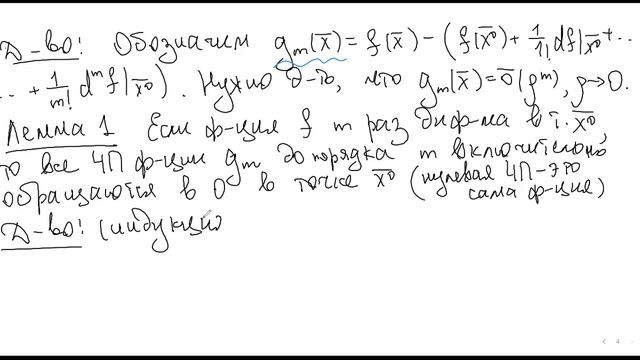 Д-во: Обозначим g_m(x̄) = f(x̄) − (f(x̄⁰) + 1/1! df|x̄⁰ + ...
... + 1/m! dᵐf|x̄⁰). Нужно д-ть, что g_m(x̄) = ō(ρᵐ), ρ→0.
Лемма 1 Если ф-ция f m раз диф-ма в т. x̄⁰,
то все ЧП ф-ции g_m до порядка m включительно
обращаются в 0 в точке x̄⁰ (нулевая ЧП – это
сама ф-ция)
Д-во: (индукцию
4